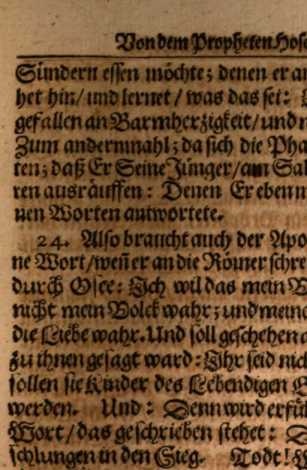 Von dem Propheten Hose
Sündern essen möchte; denen er a
het hin/ und lernet / was das sei:
gefallen an Barmherzigkeit/ und n
Zum andernmahl; da sich die Pha
ten; daß Er Seine Jünger/ am Sab
ren ausräuffen: Denen Er eben n
nen Worten antwortete.
24. Also braucht auch der Apo
ne Wort/ weñ er an die Römer schre
durch Osee: Ich wil das mein V
nicht mein Volck wahr; und meine
die Liebe wahr. Und soll geschehen a
zu ihnen gesagt ward: Ihr seid nich
sollen sie Kinder des Lebendigen G
werden. Und: Denn wird erfül
Wort/ das geschrieben stehet: D
schlungen in den Sieg. Todt!